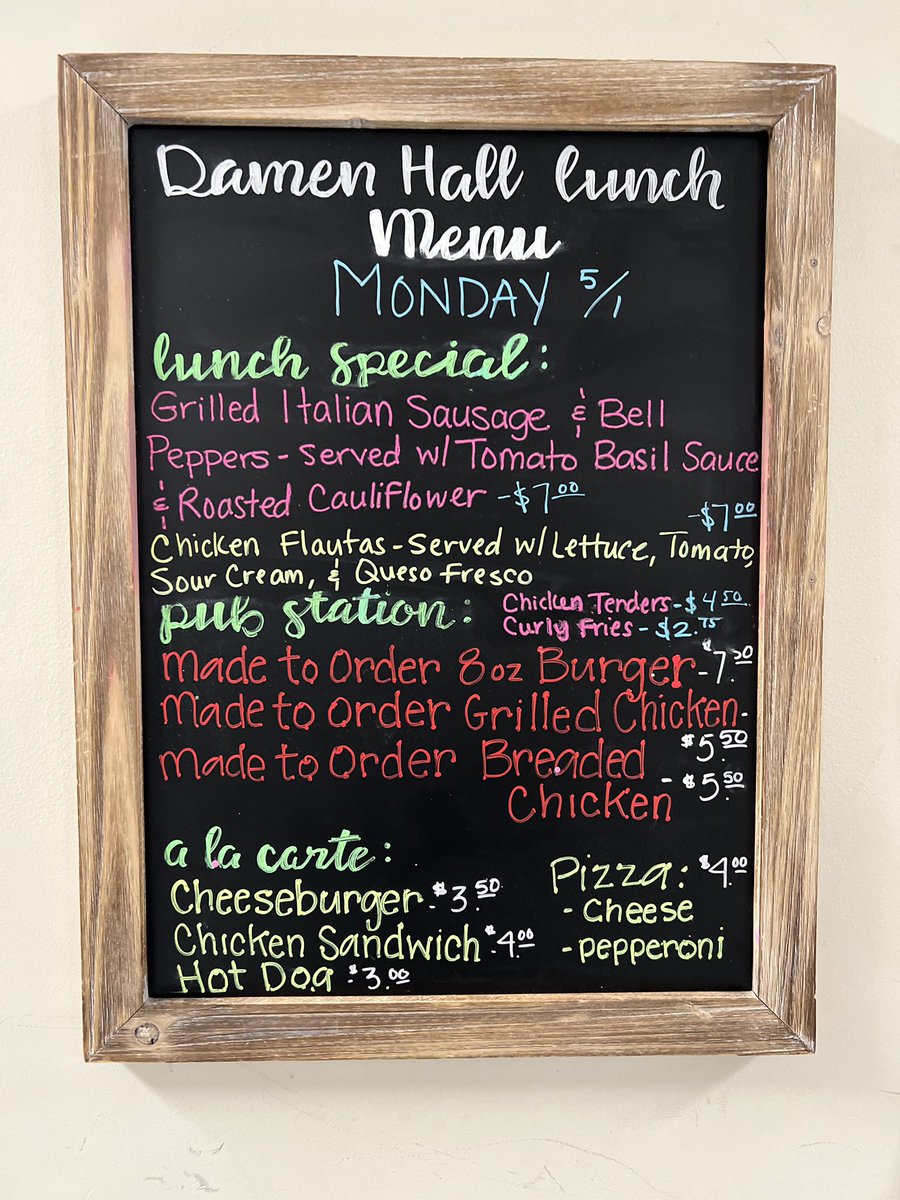 Damen Hall lunch
Menu
MONDAY 5/1
lunch special:
Grilled Italian Sausage & Bell
Peppers - Served w/ Tomato Basil Sauce
& Roasted Cauliflower - $7.00
- $7.00
Chicken Flautas - Served w/ Lettuce, Tomato,
Sour Cream, & Queso Fresco
pub station:
Chicken Tenders - $4.50
Curly Fries - $2.75
Made to Order 8oz Burger - $7.50
Made to Order Grilled Chicken -
$5.50
Made to Order Breaded
Chicken - $5.50
a la carte:
Cheeseburger - $3.50
Chicken Sandwich - $4.00
Hot Dog - $3.00
Pizza: $4.00
- Cheese
- pepperoni